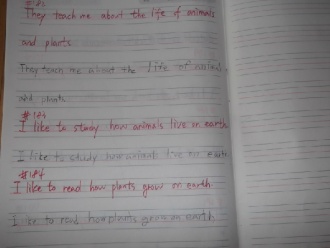 They teach me about the life of animals
and plants
They teach me about the life of animals
and plants
#183
I like to study how animals live on earth
I like to study how animals live on earth
#184
I like to read how plants grow on earth
I like to read how plants grow on earth